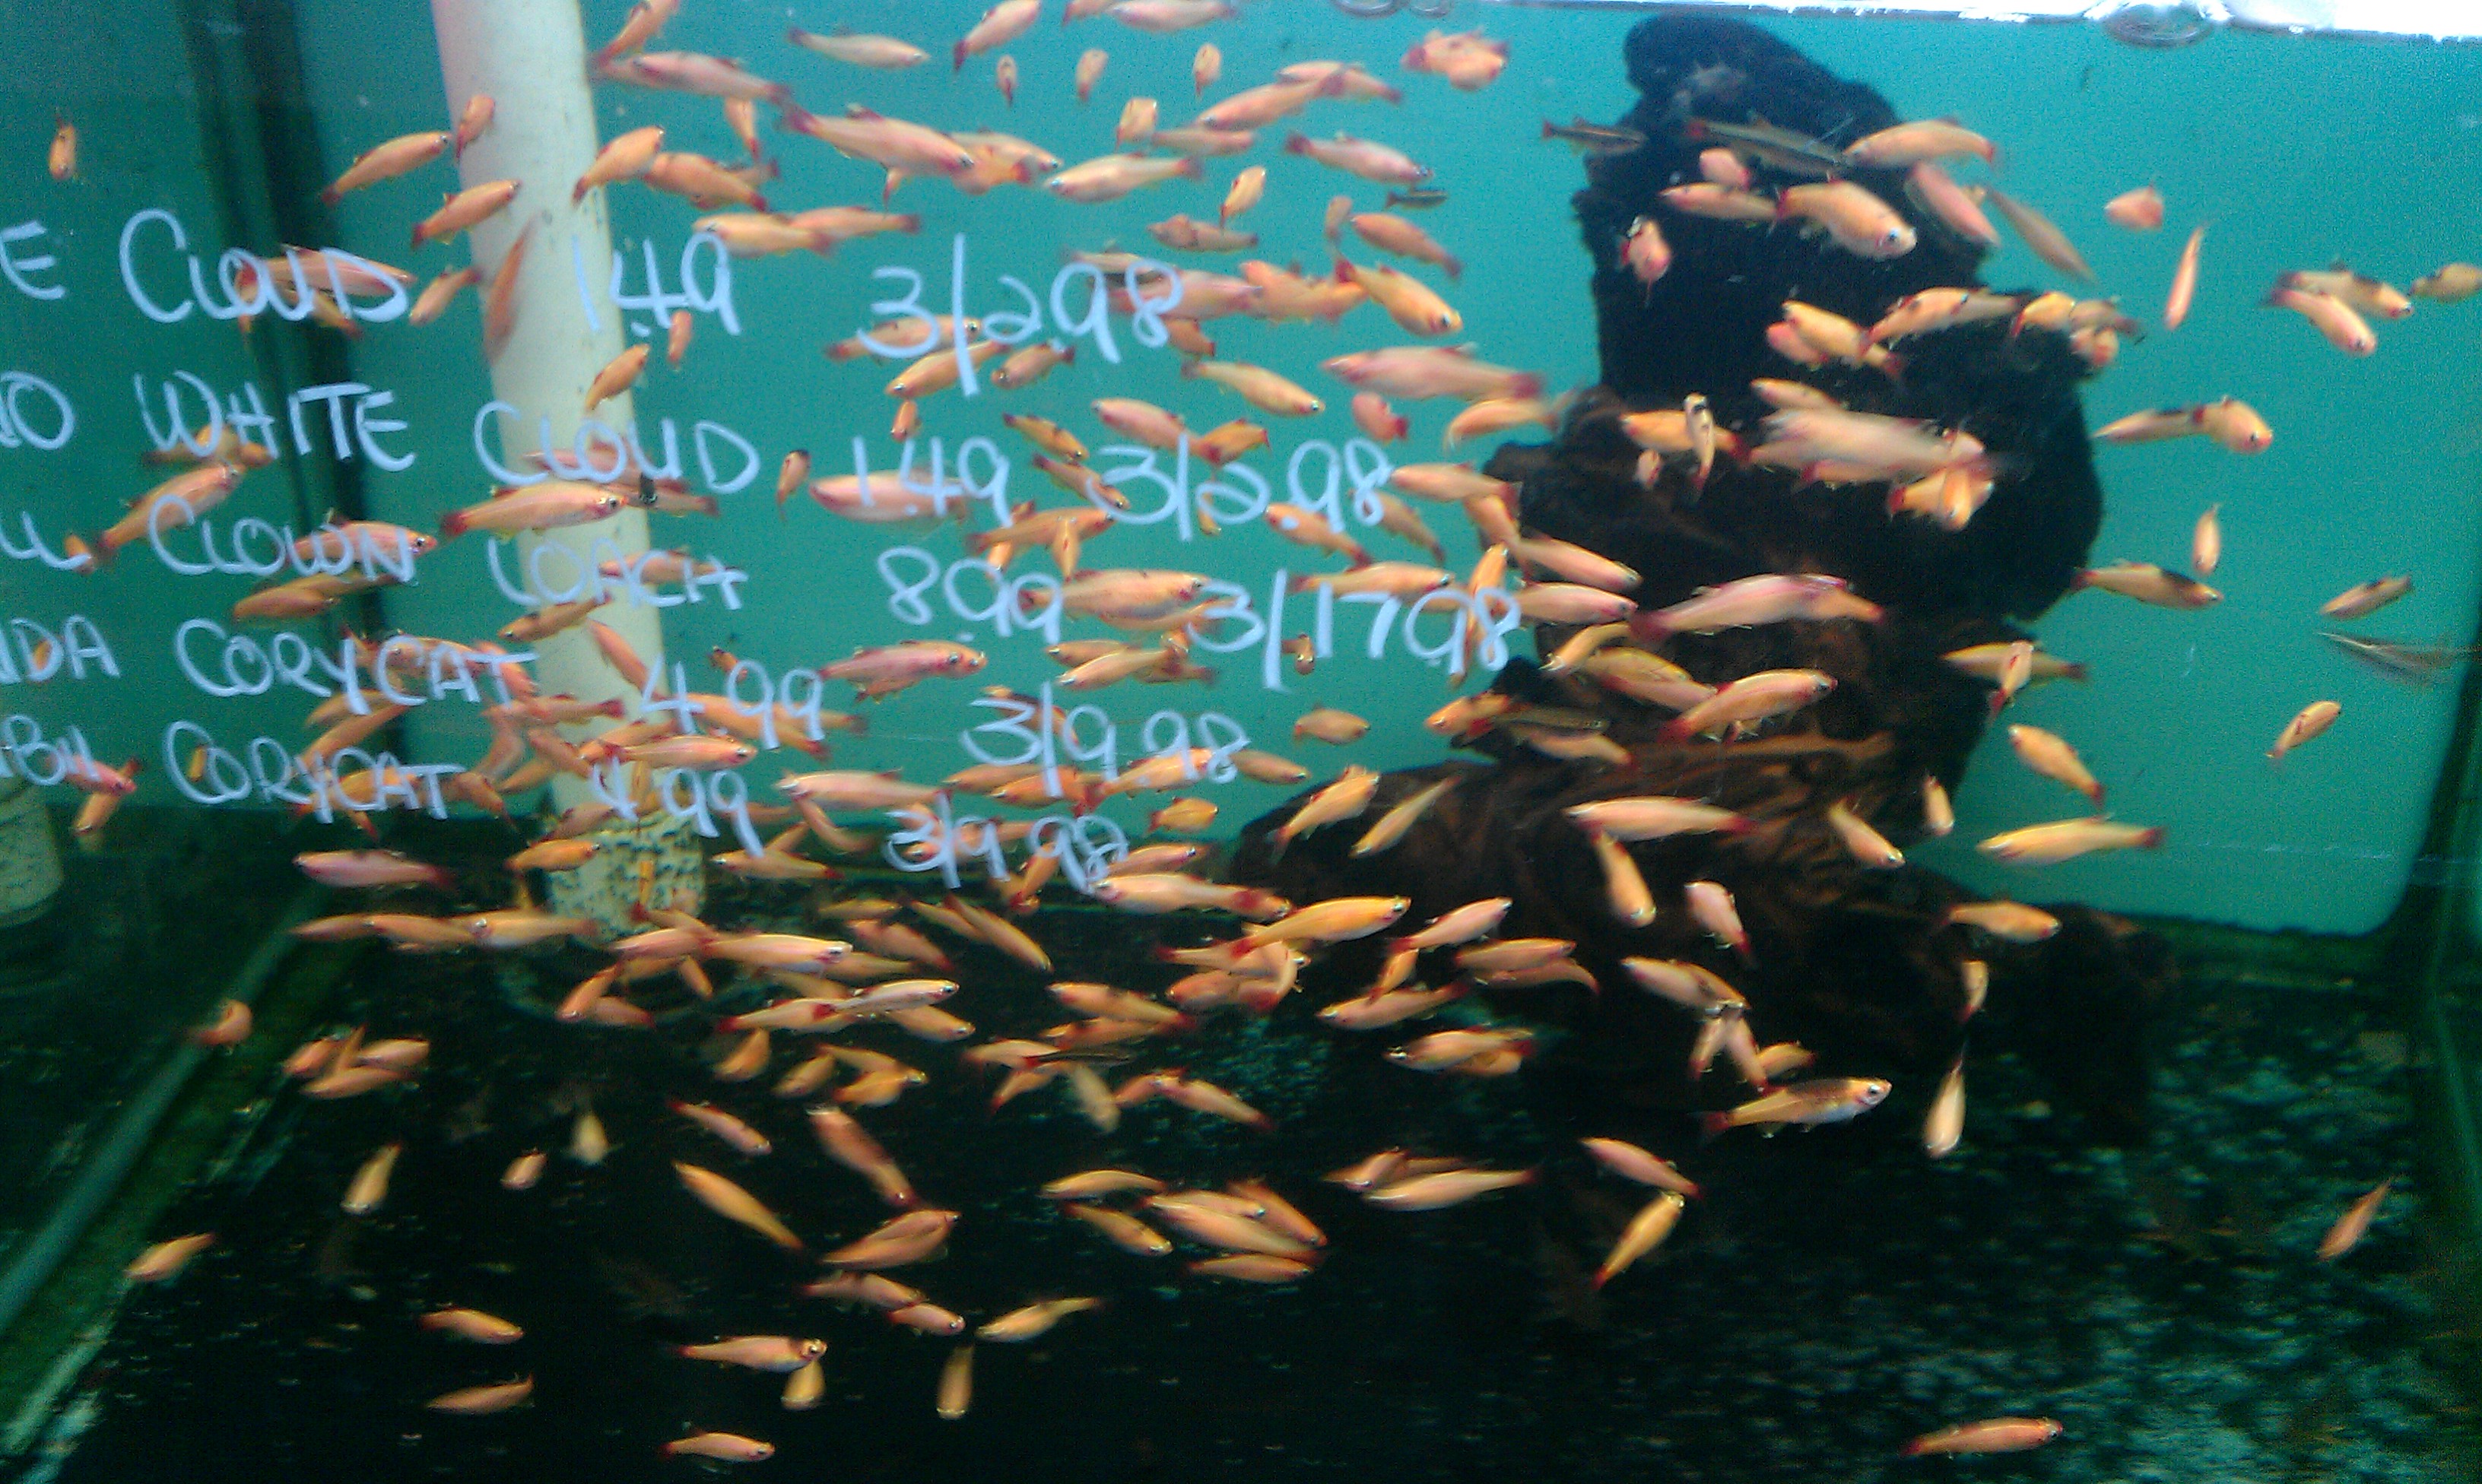 E CLOUD 1.49 3/2.98
NO WHITE CLOUD 1.49 3/2.98
LL CLOWN LOACH 8.99 3/17.98
NDA CORYCAT 4.99 3/9.98
CORYCAT 4.99 3/9.98